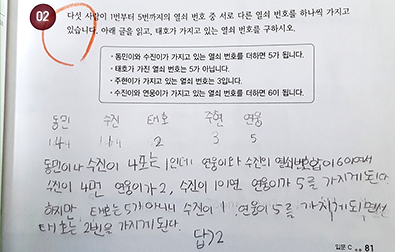 02 다섯 사람이 1번부터 5번까지의 열쇠 번호 중 서로 다른 열쇠 번호를 하나씩 가지고
있습니다. 아래 글을 읽고, 태호가 가지고 있는 열쇠 번호를 구하시오.
· 동민이와 수진이가 가지고 있는 열쇠 번호를 더하면 5가 됩니다.
· 태호가 가진 열쇠 번호는 5가 아닙니다.
· 주현이가 가지고 있는 열쇠 번호는 3입니다.
· 수진이와 연웅이가 가지고 있는 열쇠 번호를 더하면 6이 됩니다.
동민 수진 태호 주현 연웅
2 3 5
동민이나 수진이 4또는 1인데 연웅이와 수진의 열쇠번호합이 6이여서
수진이 4면 연웅이가 2, 수진이 1이면 연웅이가 5를 가지게된다.
하지만 태호는 5가아니니 수진이 1 연웅이 5를 가지게되면서
태호는 2번을 가지게된다.
답)2
입문 C 81